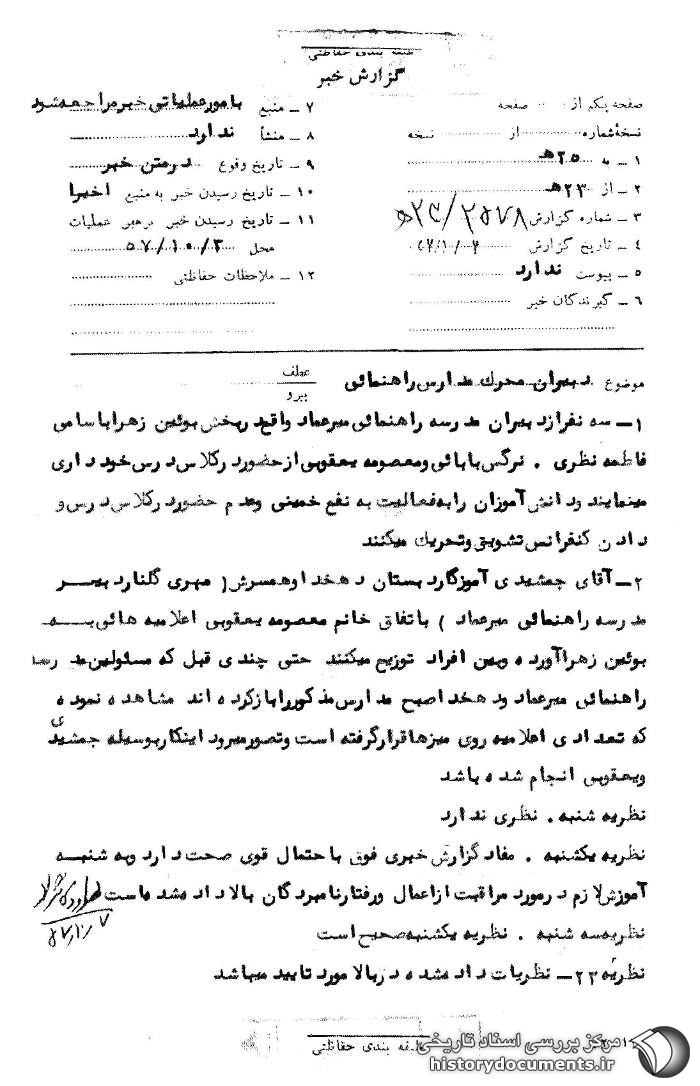 طبقه بندی حفاظتی
گزارش خبر
صفحه یکم از ..... صفحه
نسخهٔ شماره ........ از ........ نسخه
۱ – به ۲۵ هـ
۲ – از ۲۳ هـ
۳ – شماره گزارش
۴ – تاریخ گزارش
۵ – پیوست ندارد
۶ – گیرندگان خبر
۷ – منبع بامور عملیاتی خبر مراجعه شود
۸ – منشأ ندارد
۹ – تاریخ وقوع در متن خبر
۱۰ – تاریخ رسیدن خبر به منبع اخیرا
۱۱ – تاریخ رسیدن خبر به رهبر عملیات
محل ۵۷/۱۰/۳
۱۲ – ملاحظات حفاظتی
موضوع دبیران محرك مدارس راهنمائی
عطف
پیرو
۱– سه نفر از دبیران مدرسه راهنمائی میرعماد واقع در بخش بوئین زهرا باسامی
فاطمه نظری . نرگس بابائی و معصومه یعقوبی از حضور در کلاس درس خود داری
مینمایند و دانش آموزان را به فعالیت به نفع خمینی و عدم حضور در کلاس درس و
دادن کنفرانس تشویق و تحریك میکنند
۲– آقای جمشیدی آموزگار دبستان دهخدا و همسرش ( مهری گلنار دبیر
مدرسه راهنمائی میرعماد ) باتفاق خانم معصومه یعقوبی اعلامیه هائی به
بوئین زهرا آورده و بین افراد توزیع میکنند حتی چندی قبل که مسئولین مدرسه
راهنمائی میرعماد و دهخدا صبح مدارس مذکور را باز کرده اند مشاهده نموده
که تعدادی اعلامیه روی میزها قرار گرفته است و تصور میرود اینکار بوسیله جمشیدی
و یعقوبی انجام شده باشد
نظریه شنبه . نظری ندارد
نظریه یکشنبه . مفاد گزارش خبری فوق با حتمال قوی صحت دارد و به شنبه
آموزش لازم در مورد مراقبت از اعمال و رفتار نامبردگان بالا داده شده است
نظریه سه شنبه . نظریه یکشنبه صحیح است
نظریه ۲۳ – نظریات داده شده در بالا مورد تایید میباشد
طبقه بندی حفاظتی
مرکز بررسی اسناد تاریخی
historydocuments.ir